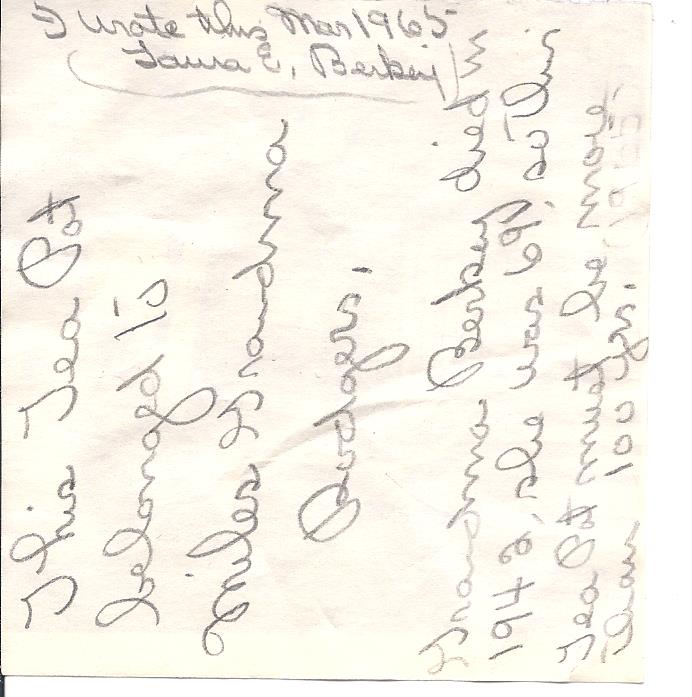 I wrote this Mar 1965
Laura E. Berkey
This Tea Pot
belonged to
Miles Grandma
Rodgers.
Grandma Berkey died in
1942, she was 69, so this
Tea Pot must be more
than 100 yrs. 1965.